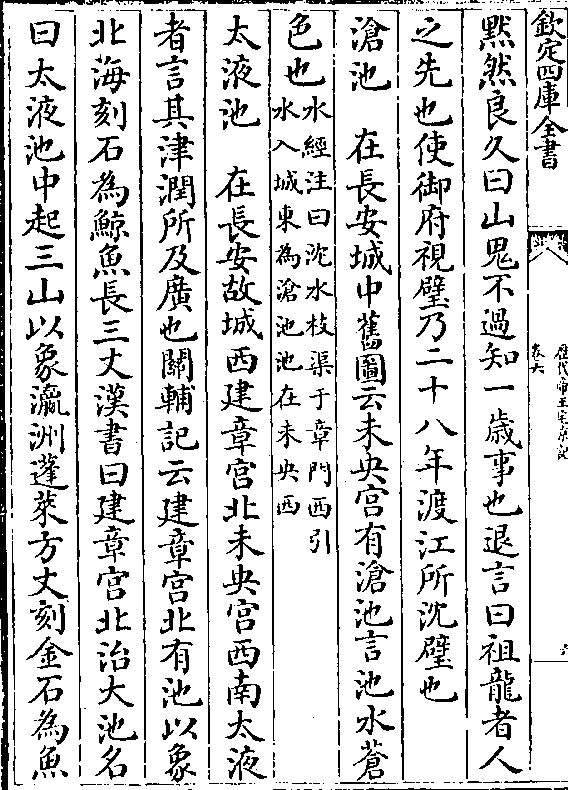 欽定四庫全書
歷代帝王宅京記
卷六
六
默然良久曰山鬼不過知一歳事也退言曰祖龍者人
之先也使御府視璧乃二十八年渡江所沈璧也
滄池　在長安城中舊圖云未央宫有滄池言池水蒼
色也水經注曰沈水枝渠于章門西引
水入城東為滄池池在未央西
太液池　在長安故城西建章宫北未央宫西南太液
者言其津潤所及廣也關輔記云建章宫北有池以象
北海刻石為鯨魚長三丈漢書曰建章宫北治大池名
曰太液池中起三山以象瀛洲蓬萊方丈刻金石為魚